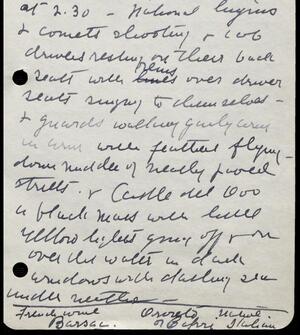 at 2.30 - National hymns
& comets shooting & cab
drivers resting on their back
seats with reins over driver
seats singing to themselves -
& guards walking gaily arm
in arm with feathers flying -
down middle of neatly paved
streets. & Castle del Ovo
a black mass with little
yellow lights going off & on
over the water in dark
windows with dashing sea
under neath -
French wine Orvieto white
Barsac. or Capri Italian